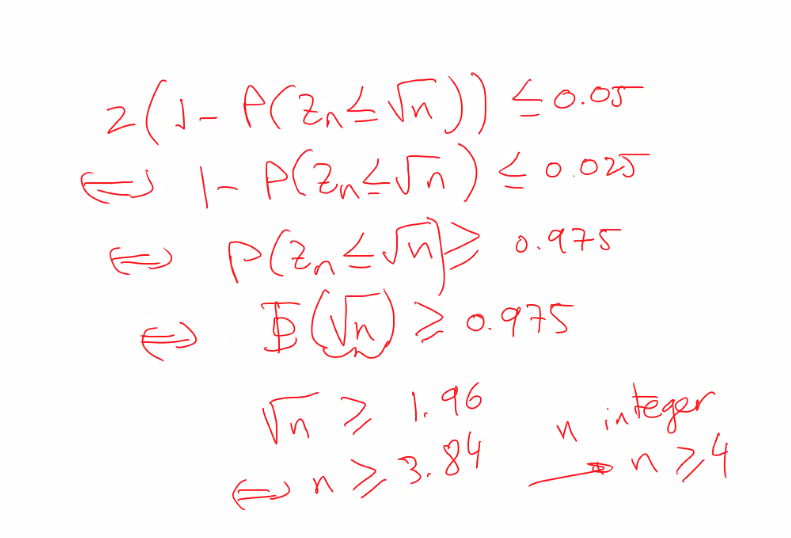 2(1 - P(Zn ≤ √n)) ≤ 0.05
⟺ 1 - P(Zn ≤ √n) ≤ 0.025
⟺ P(Zn ≤ √n) ≥ 0.975
⟺ Φ(√n) ≥ 0.975
√n ≥ 1.96
⟺ n ≥ 3.84
n integer
→ n ≥ 4